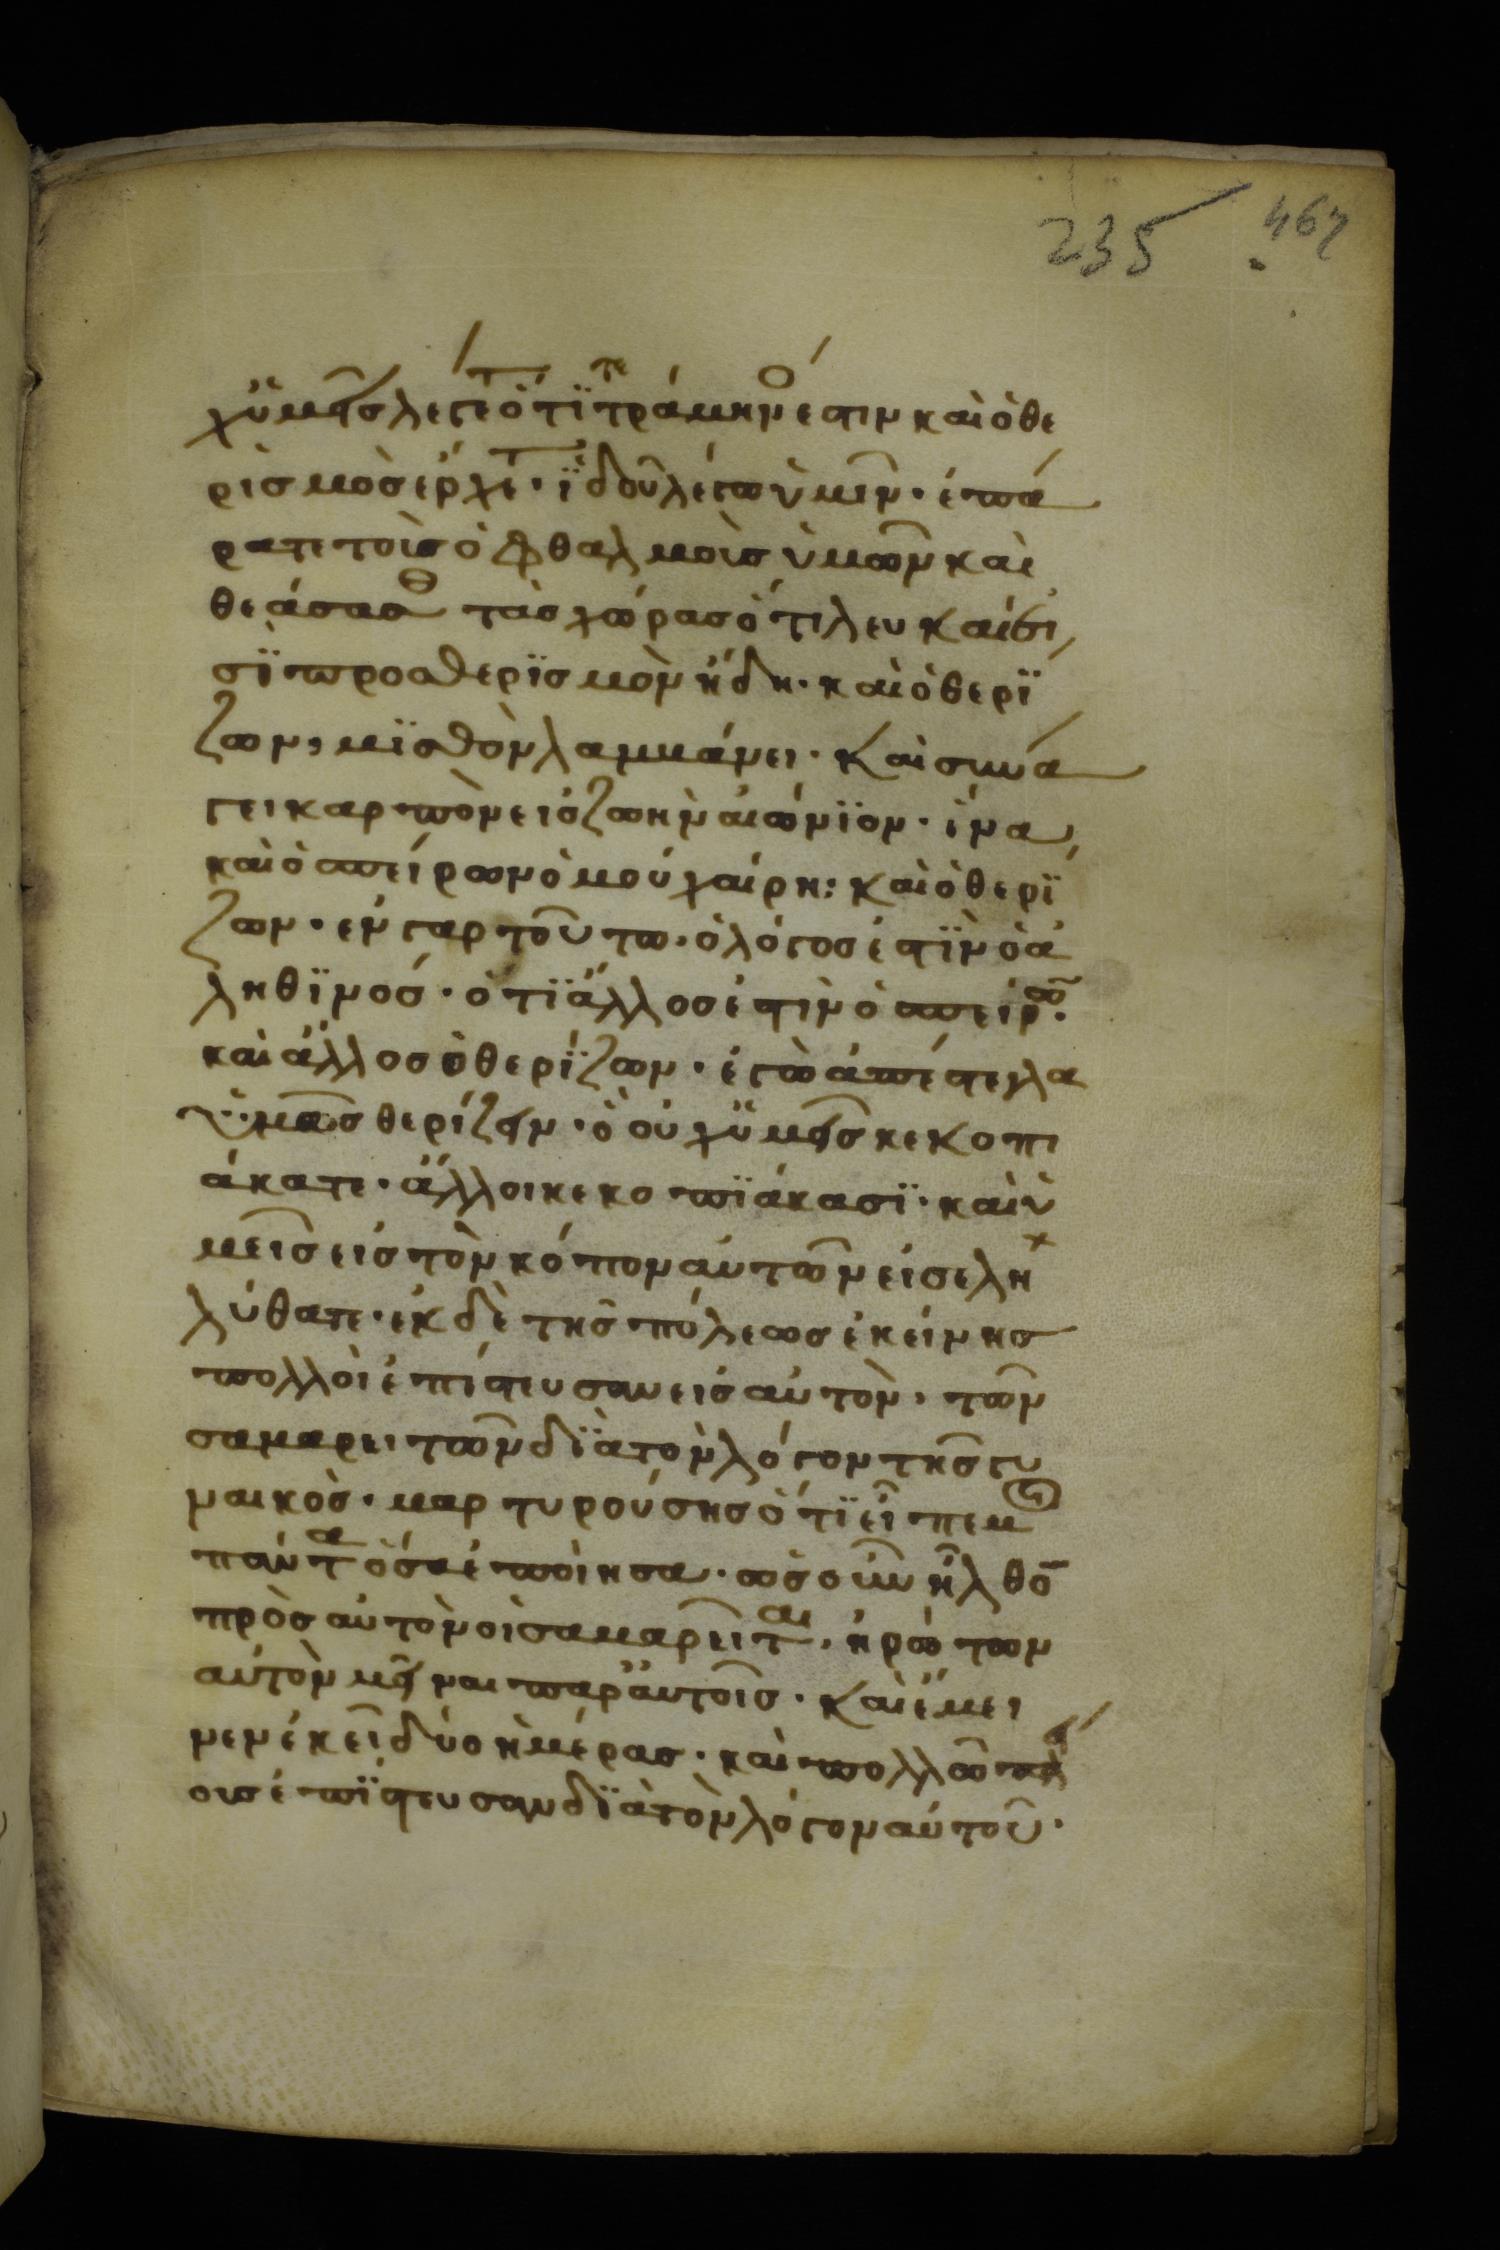 235 467
χ ὑμεῖς λέγετε ὅτι τετράμηνός ἐστιν καὶ ὁ θε
ρισμὸς ἔρχετ· ἰδοῦ λέγω ὑμῖν· ἐπά
ρατε τοὺς ὀφθαλμοὺς ὑμῶν καὶ
θεάσασθ τὰς χώρας ὅτι λευκαί εἰ
σϊ προσ θερϊσμὸν ἤδη· καὶ ὁ θερϊ
ζων, μϊσθὸν λαμβάνει· καὶ συνά
γει καρπὸν εἰς ζωὴν αἰώνϊον· ἵνα
καὶ ὁ σπείρων ὁμοῦ χαίρη: καὶ ὁ θερϊ
ζων· ἐν γὰρ τοῦτω· ὁ λόγος ἐστϊν ὁ ἀ
ληθϊνός· ὅτϊ ἄλλος ἐστὶν ὁ σπείρω·
καὶ ἄλλος ὁ θερΐζων· ἐγὼ ἀπέστειλα
ὑμᾶς θερίζειν· ὃ οὐχ ὑμεῖς κεκοπι
άκατε· ἄλλοι κεκοπϊάκασϊ· καὶ ὑ
μεῖς εἰς τὸν κόπον αὐτῶν εἰσελη
λύθατε· ἐκ δὲ τῆς πόλεως ἐκείνης
πολλοὶ ἐπίστευσαν εἰς αὐτὸν, τῶν
σαμαρειτῶν δϊὰ τὸν λόγον τῆς γυ
ναικὸς· μαρτυρούσης ὅτϊ εἶπεν μοι
πάντα ὅσα ἐποίησα· ὡς οὖν ἦλθο
πρὸς αὐτὸν οἱ σαμαρεῖται, ἠρώτων
αὐτὸν μεῖναι παρ' αὐτοῖς· καὶ ἔμει
νεν ἐκεῖ δύο ἡμέρας· καὶ πολλῶ πλεί
ους ἐπϊστευσαν δϊὰ τὸν λόγον αὐτοῦ·